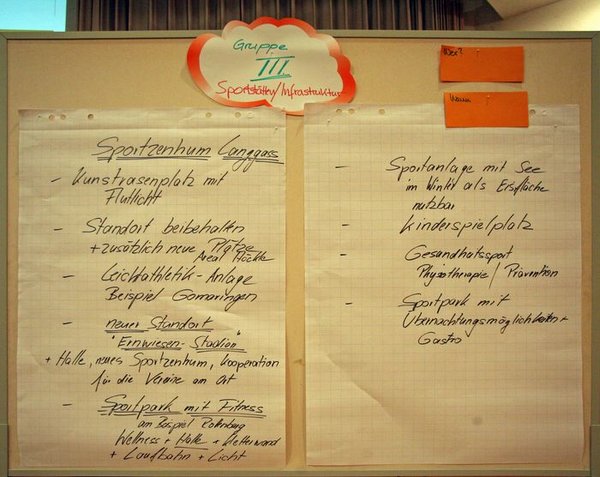 Gruppe
III
Sportstätten/Infrastruktur
Wer?
Wann ?
Sportzentrum Langgass
- Kunstrasenplatz mit
Flutlicht
- Standort beibehalten
+ zusätzlich neue Plätze
Areal
- Leichtathletik-Anlage
Beispiel Gomaringen
- neuer Standort
"Einwiesen-Stadion"
+ Halle, neues Sportzentrum, Kooperation
für die Vereine am Ort
- Sportpark mit Fitness
am Beispiel Rottenburg
Wellness + Halle + Kletterwand
+ Laufbahn + Licht
- Sportanlage mit See
im Winter als Eisfläche
nutzbar
- Kinderspielplatz
- Gesundheitssport
Physiotherapie / Prävention
- Sportpark mit
Übernachtungsmöglichkeiten +
Gastro